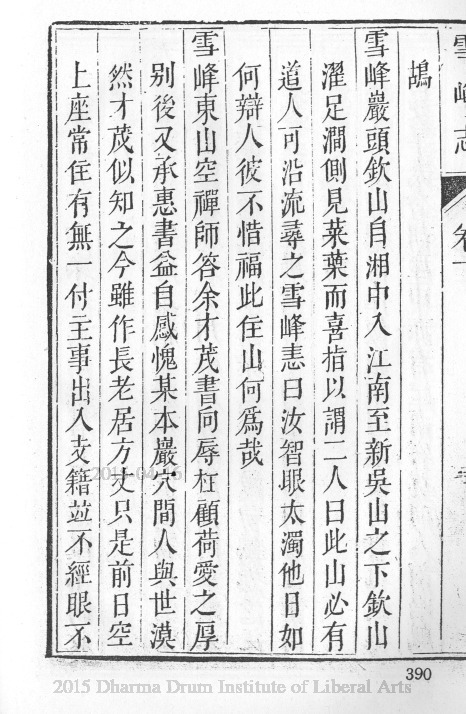 雪峰志 卷一
鴣
雪峰巖頭欽山自湘中入江南至新吳山之下欽山
濯足澗側見菜葉而喜指以謂二人曰此山必有
道人可沿流尋之雪峰恚曰汝智眼太濁他日如
何辯人彼不惜福此住山何爲哉
雪峰東山空禪師答余才茂書向辱枉顧荷愛之厚
别後又承惠書益自感愧某本巖穴間人與世漠
然才茂似知之今雖作長老居方丈只是前日空
上座常住有無一付主事出入支籍並不經眼不
390
2015 Dharma Drum Institute of Liberal Arts